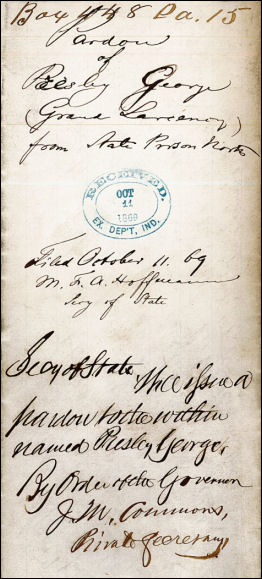 Box 48 Da. 15
Pardon
of
Presley George
(Grand Larceny)
from State Prison North
RECEIVED.
OCT
11
1869
EX. DEP'T, IND.
Filed October 11. 69
M. F. A. Hoffmann
Secy of State
Secy of State Will issue a
pardon to the within
named Presley George,
By Order of the Governor
J. M. Commons,
Private Secretary